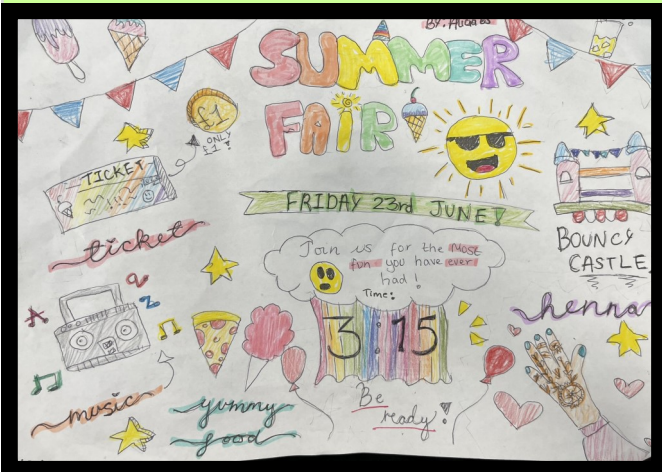 SUMMER
FAIR
£1
ONLY
£1 !
TICKET
ticket
FRIDAY 23rd JUNE!
Join us for the most
fun you have ever
had!
Time:
3:15
Be
ready!
BOUNCY
CASTLE
henna
music
yummy
food